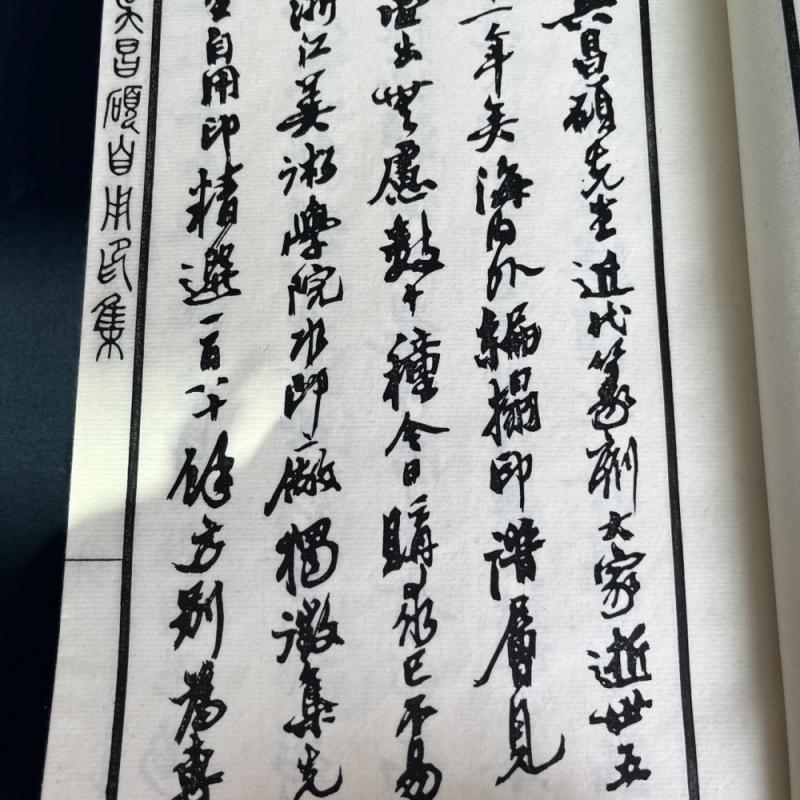 吳昌碩先生近代篆刻大家逝世五
十一年矣海內外編搨印譜層見
疊出無慮數十種今日購求已不易
浙江美術學院水印廠獨徵集先
生自用印精選一百八十餘方別爲專
吳昌碩自用印集